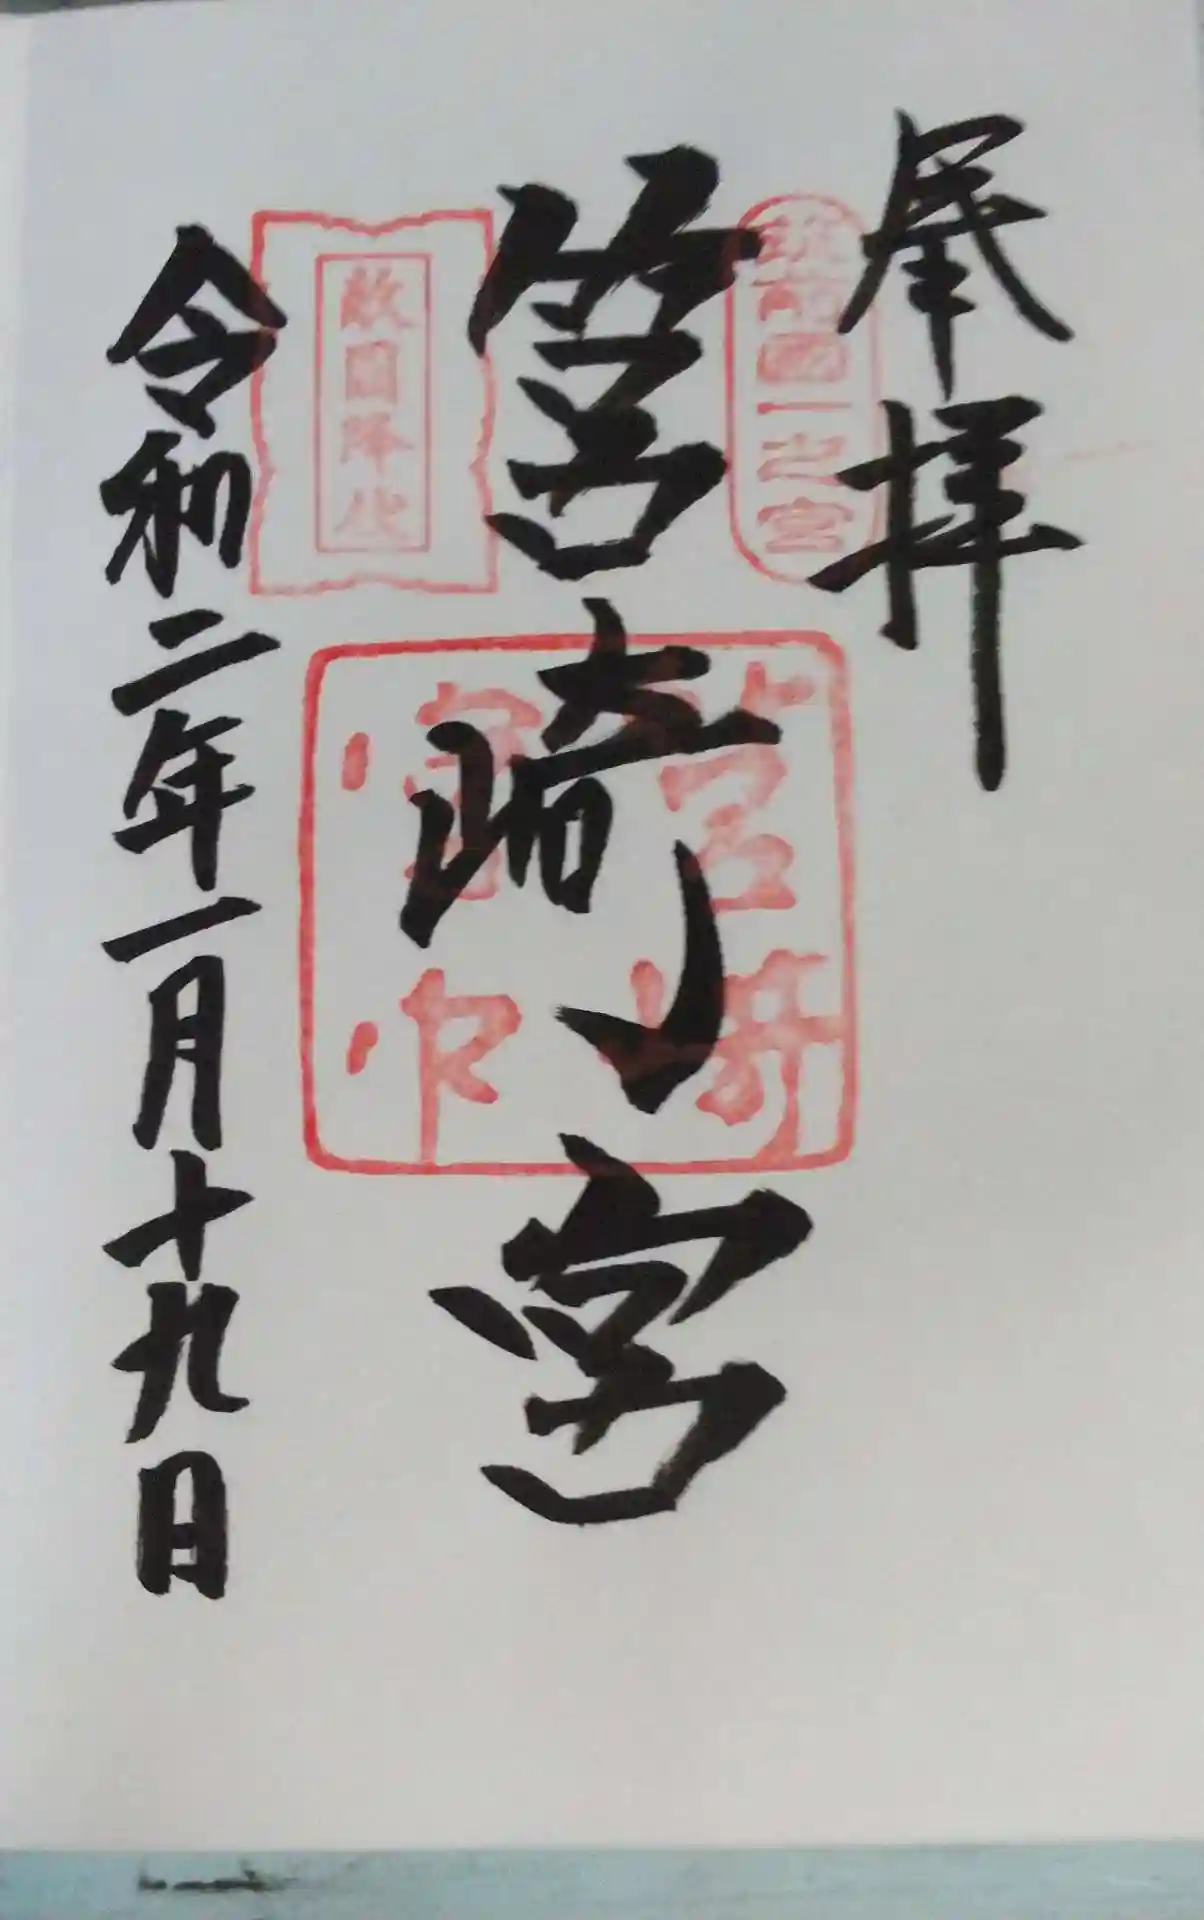 奉拝
筑前國一之宮
筥崎宮
敵国降伏
令和二年一月十九日